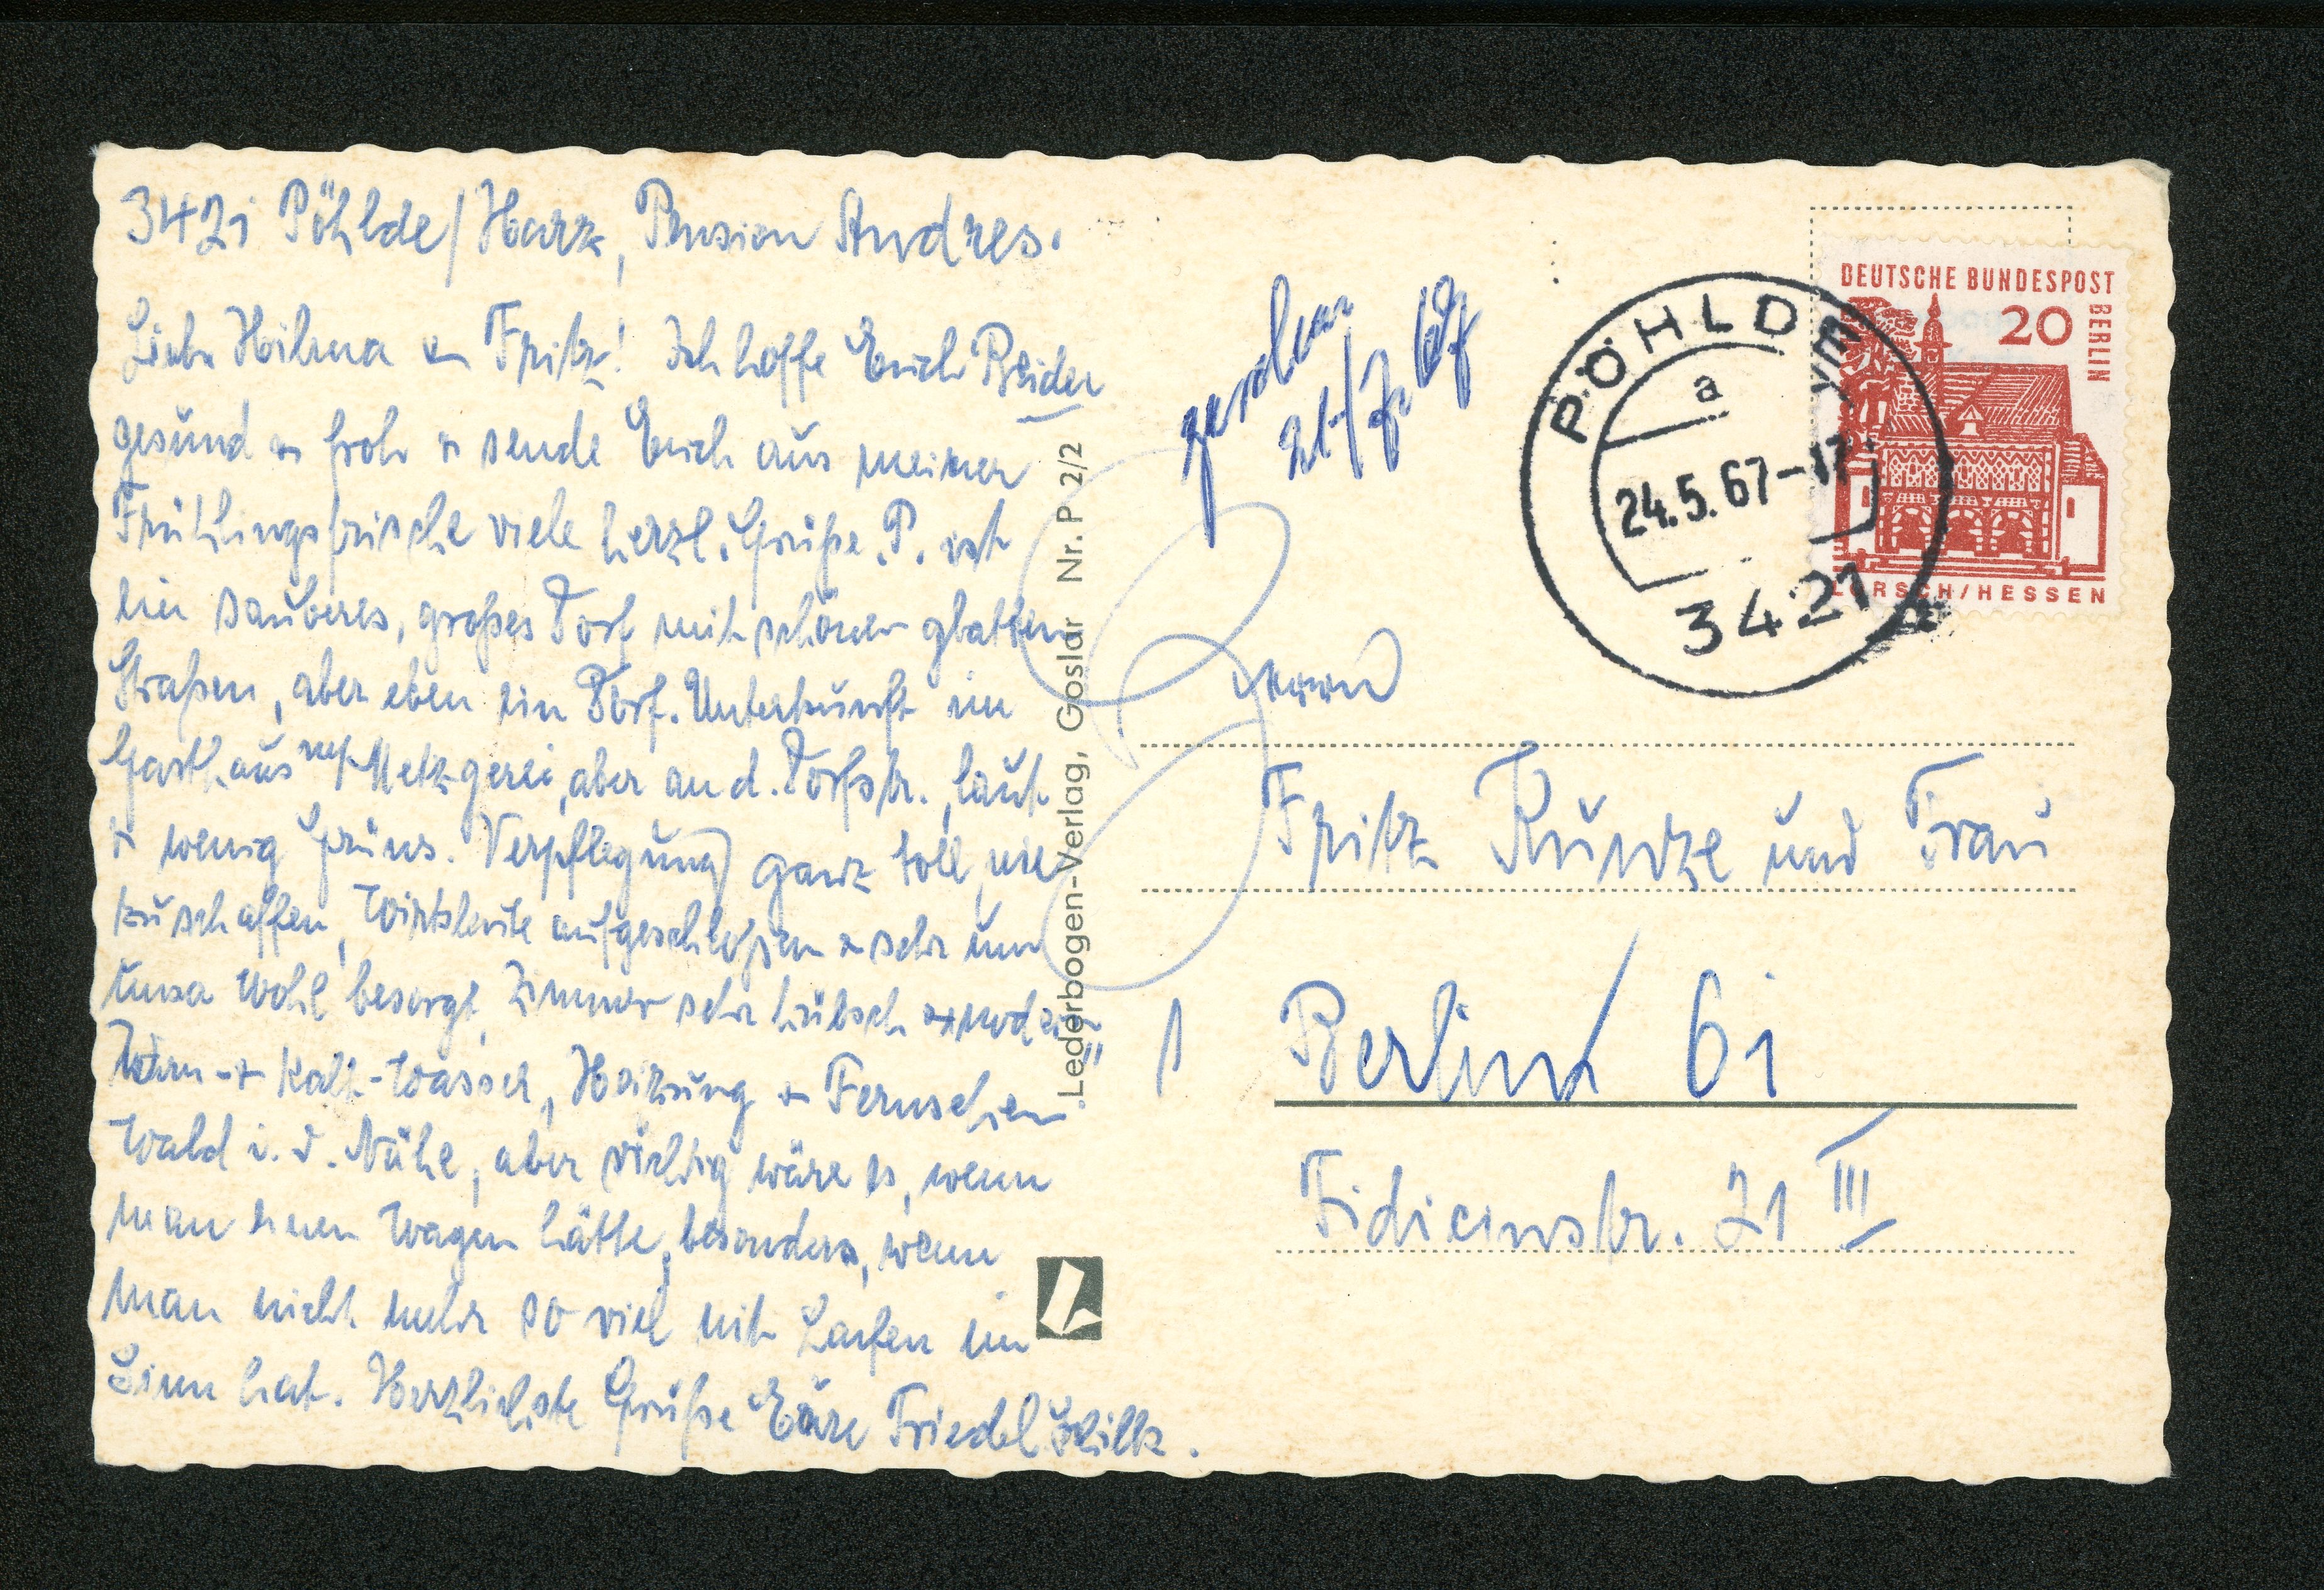 3421 Pöhlde/Harz, Pension Andres.
Liebe Hilma u. Fritz! Ich hoffe Euch Beide
gesund u. froh u. sende Euch aus meiner
Frühlingsfrische viele herzl. Grüße. P. ist
ein sauberes, großes Dorf mit schönen glatten
Straßen, aber eben ein Dorf. Unterkunft im
Gasthaus mit Metzgerei, aber an d. Dorfstr., laut
u. wenig Grünes. Verpflegung ganz toll, nie
zu schaffen, Wirtsleute aufgeschlossen u. sehr um
unser Wohl besorgt, Zimmer sehr hübsch u. modern
Warm- u. Kalt-Wasser, Heizung u. Fernsehen.
Wald i. d. Nähe, aber richtig wäre es, wenn
man einen Wagen hätte, besonders, wenn
man nicht mehr so viel mit Laufen im
Sinn hat. Herzlichste Grüße Eure Friedel
Lederbogen-Verlag, Goslar Nr. P 2/2
DEUTSCHE BUNDESPOST
BERLIN
20
LORSCH/HESSEN
PÖHLDE
a
24.5.67-17
3421
Herrn
Fritz Kunze und Frau
1 Berlin 61
Fidicinstr. 21 III